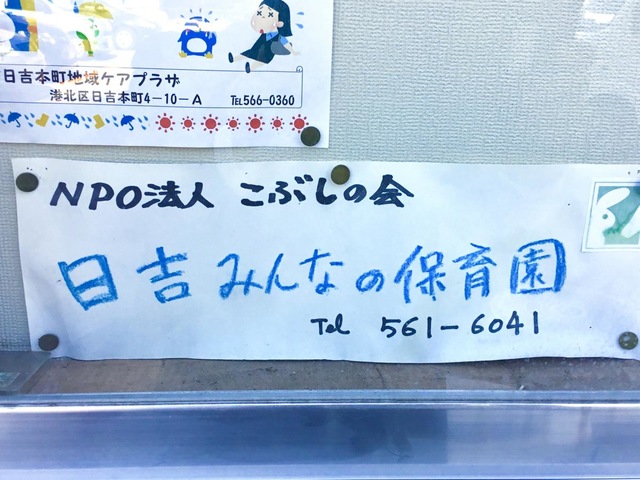 日吉本町地域ケアプラザ
港北区日吉本町4-10-A TEL566-0360
NPO法人 こぶしの会
日吉みんなの保育園
Tel 561-6041